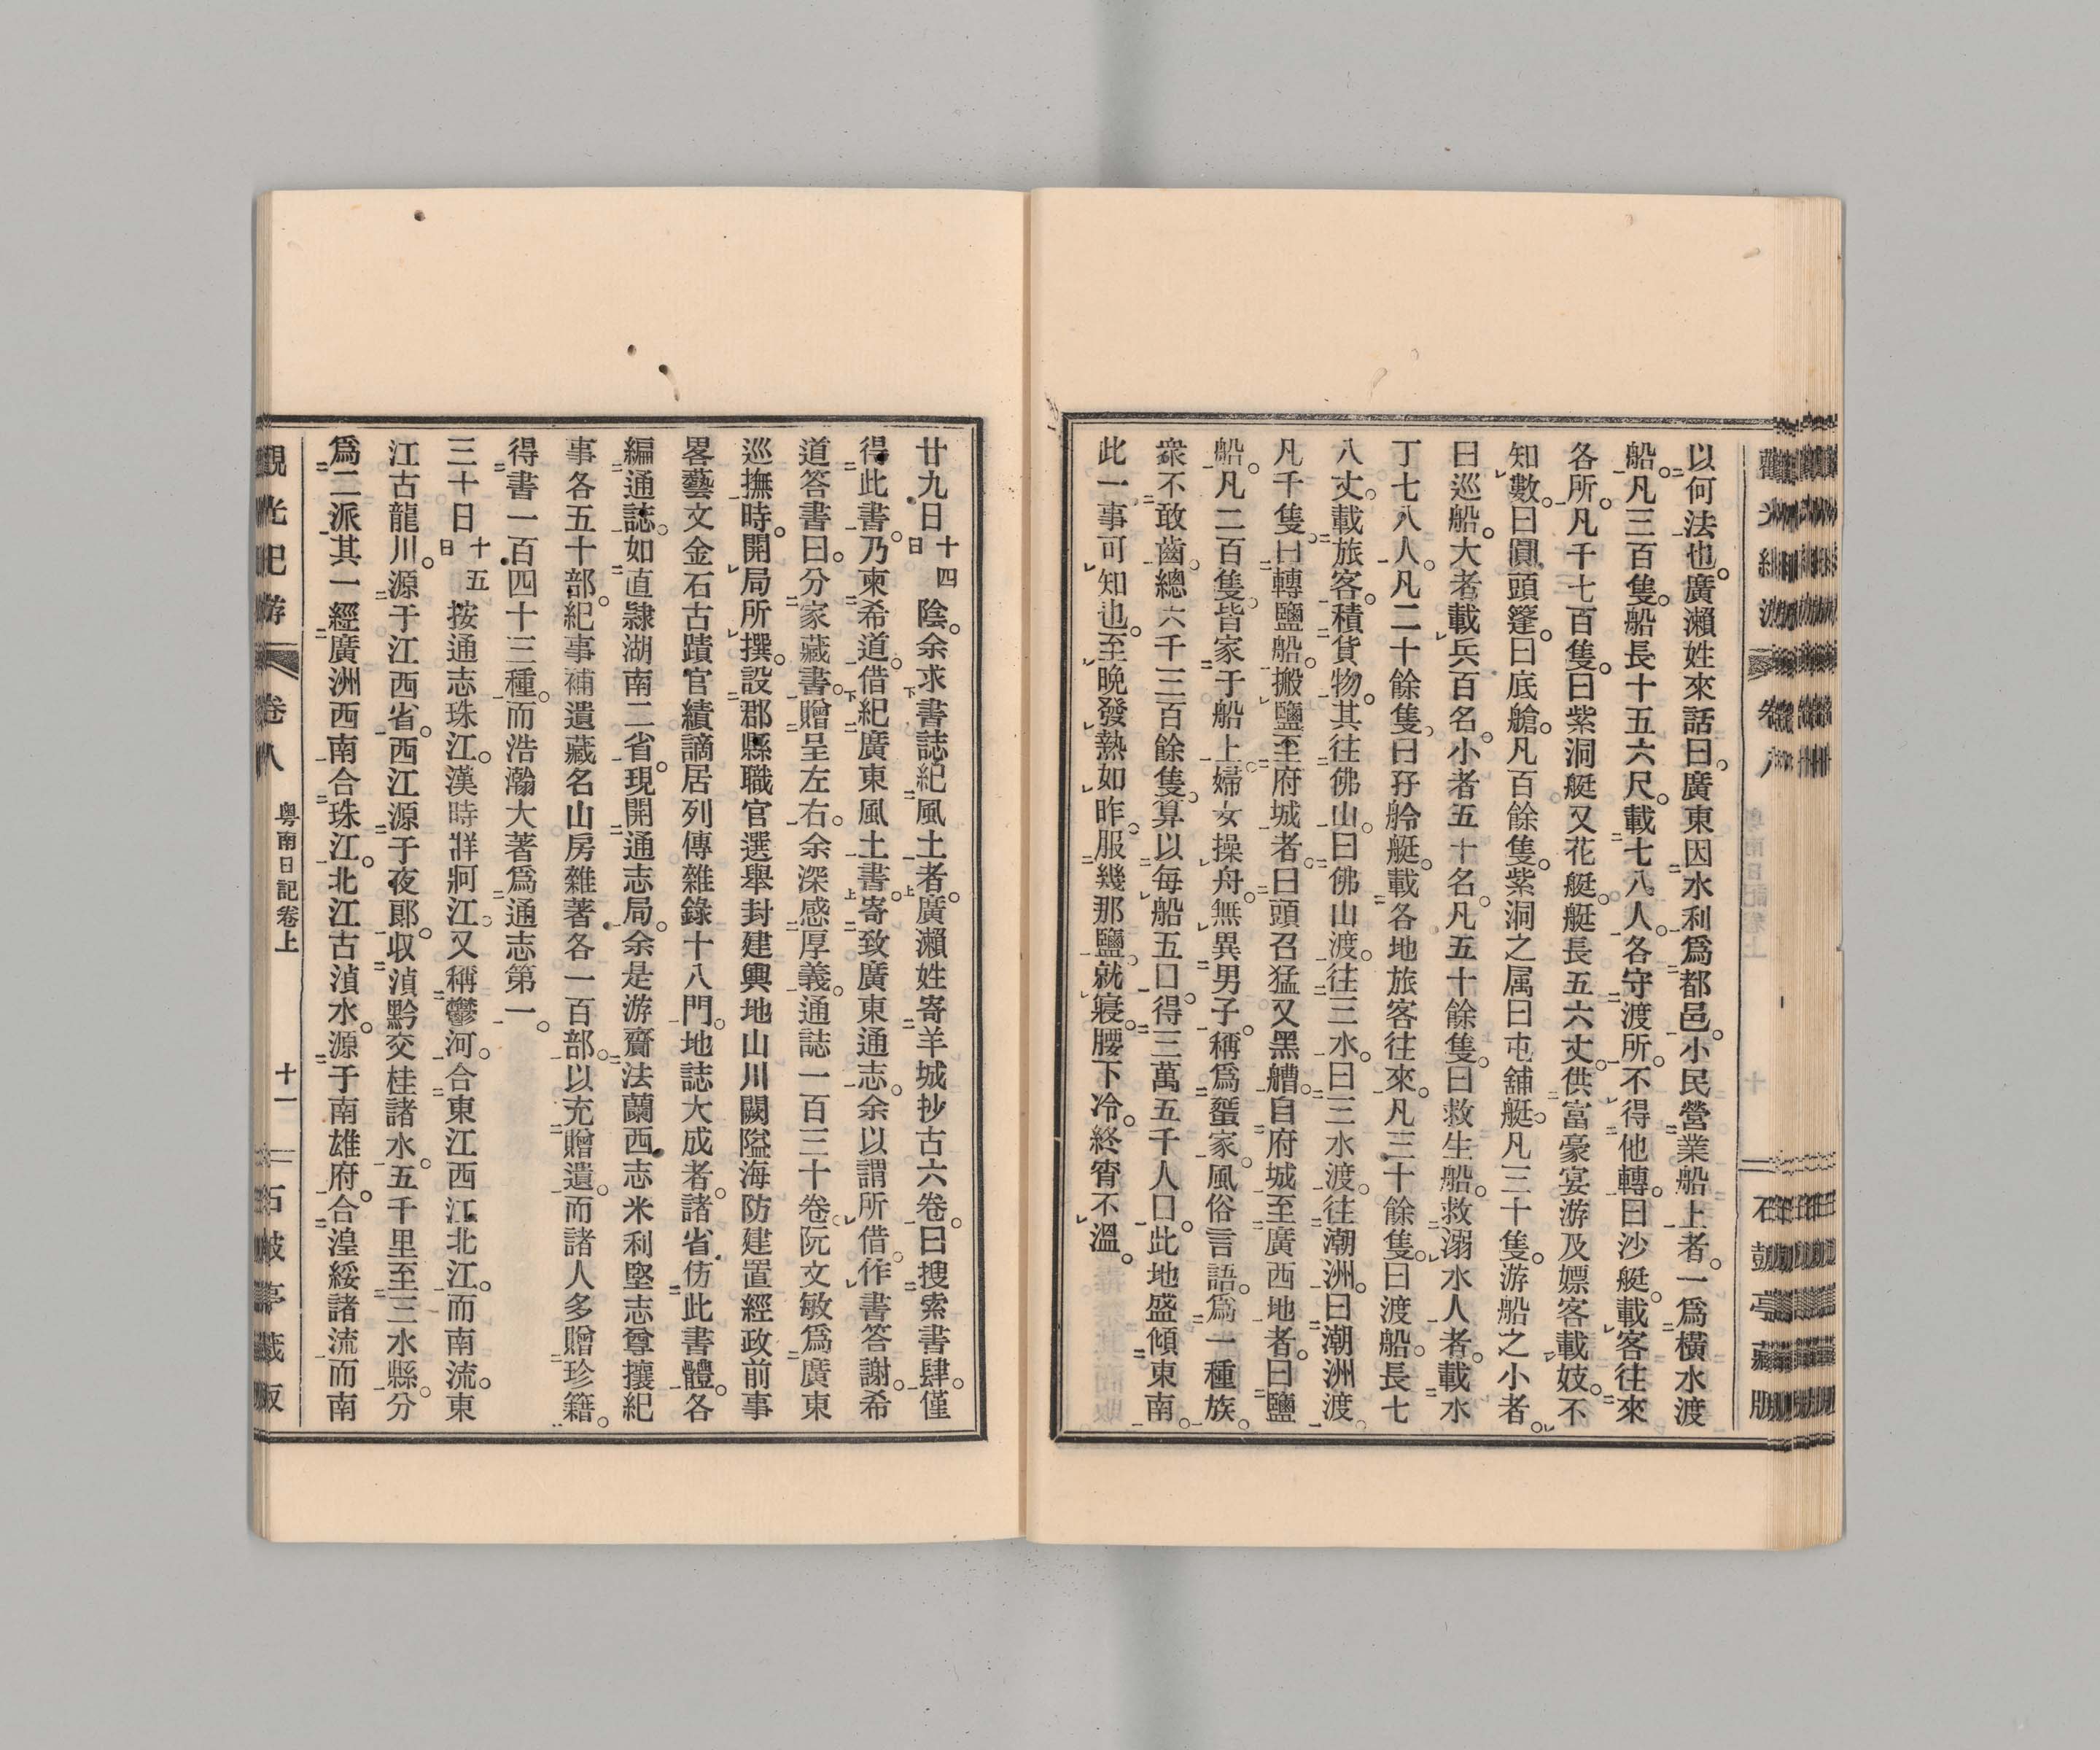 以何法也。廣瀨姓來話曰。廣東因水利爲都邑。小民營業船上者。一爲横水渡
船。凡三百隻。船長十五六尺。載七八人。各守渡所。不得他轉。曰沙艇。載客往來
各所。凡千七百隻。曰紫洞艇又花艇。艇長五六丈。供富豪宴游及嫖客載妓。不
知數。曰圓頭篷。曰底艙。凡百餘隻。紫洞之属曰屯舖艇。凡三十隻。游船之小者。
曰巡船。大者載兵百名。小者五十名。凡五十餘隻。曰救生船。救溺水人者。載水
丁七八人。凡二十餘隻。曰孖舲艇。載各地旅客往來。凡三十餘隻。曰渡船。長七
八丈。載旅客。積貨物。其往佛山。曰佛山渡。往三水。曰三水渡。往潮洲。曰潮洲渡。
凡千隻。曰轉鹽船。搬鹽至府城者。曰頭召猛又黑艚。自府城至廣西地者。曰鹽
船。凡二百隻。皆家于船上。婦女操舟。無異男子。稱爲蜑家。風俗言語。爲一種族。
衆不敢齒。總六千三百餘隻。算以每船五口。得三萬五千人口。此地盛傾東南。
此一事可知也。至晚發熱如昨。服幾那鹽。就寢。腰下冷。終宵不溫。
廿九日十四日陰。余求書誌紀風土者。廣瀨姓寄羊城抄古六卷。曰搜索書肆。僅
得此書。乃柬希道。借紀廣東風土書。寄致廣東通志。余以謂所借。作書答謝。希
道答書曰。分家藏書。贈呈左右。余深感厚義。通誌一百三十卷。阮文敏爲廣東
巡撫時。開局所撰。設郡縣職官選舉封建輿地山川闕隘海防建置經政前事
畧藝文金石古蹟官績謫居列傳雜錄十八門。地誌大成者。諸省仿此書體。各
編通誌。如直隷湖南二省。現開通志局。余是游齎法蘭西志米利堅志尊攘紀
事各五十部。紀事補遺藏名山房雜著各一百部。以充贈遺。而諸人多贈珍籍。
得書一百四十三種。而浩瀚大著爲通志第一。
三十日十五日按通志珠江。漢時牂牁江。又稱鬱河。合東江西江北江。而南流。東
江古龍川。源于江西省。西江源于夜郎。収湞黔交桂諸水。五千里至三水縣。分
爲二派。其一經廣洲西南合珠江。北江古湞水。源于南雄府。合湟綏諸流。而南
觀光紀游 卷八 粤南日記卷上 十一 石鼓亭藏版